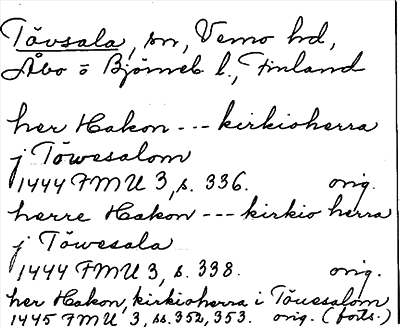 Tövsala, sn, Vemo hd,
Åbo o Björneb l., Finland
her Hakon --- kirkioherra
j Töwesalom
1444 FMU 3, s. 336. orig.
herre Hakon --- kirkio herra
j Töwesala
1444 FMU 3, s. 338. orig.
her Hakon, kirkioherra i Töuesalom
1445 FMU 3, ss. 352, 353. orig. (forts.)